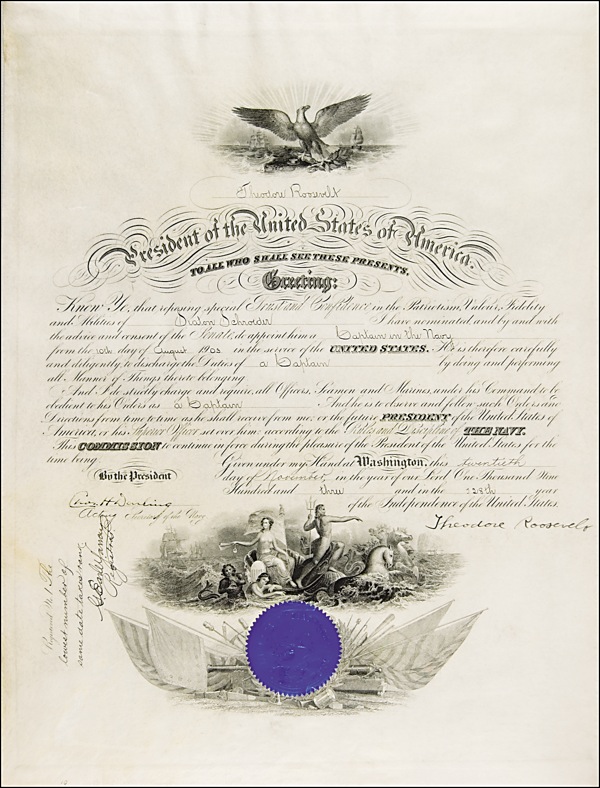 Theodore Roosevelt
President of the United States of America.
TO ALL WHO SHALL SEE THESE PRESENTS,
Greeting:
Know Ye, that reposing special Trust and Confidence in the Patriotism, Valour, Fidelity
and Abilities of Seaton Schroeder I have nominated, and by and with
the advice and consent of the Senate, do appoint him a Captain in the Navy
from the 10th day of August 1903 in the service of the UNITED STATES. He is therefore carefully
and diligently to discharge the Duties of a Captain by doing and performing
all Manner of Things thereto belonging
And I do strictly charge and require, all Officers, Seamen and Marines, under his Command to be
obedient to his Orders as a Captain And he is to observe and follow such Orders and
Directions from time to time as he shall receive from me, or the future PRESIDENT of the United States of
America, or his Superior Officer set over him, according to the Rules and Discipline of THE NAVY.
This COMMISSION to continue in force during the pleasure of the President of the United States for the
time being.
Given under my Hand at Washington, this twentieth
By the President
day of November, in the year of our Lord One Thousand Nine
Hundred and three and in the 128th year
of the Independence of the United States.
Chas H Darling
Acting Secretary of the Navy
Theodore Roosevelt
Registered No 1 The
lowest number of
same date takes rank